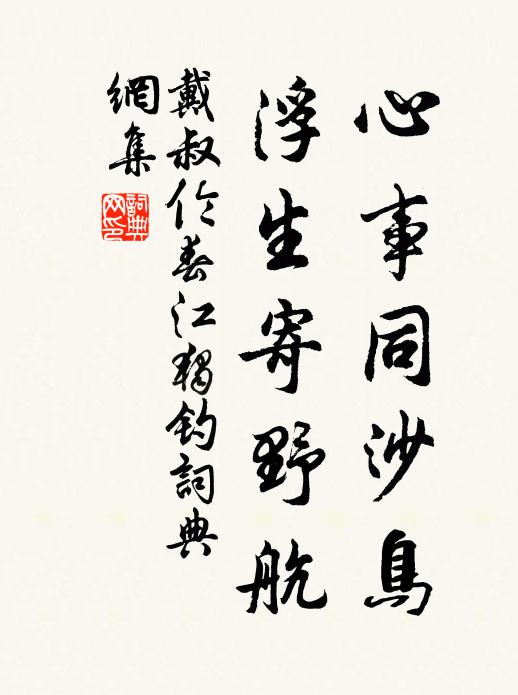 心事同沙鳥
浮生寄野航
戴叔伦春江獨釣詞典
網集
詞典网印